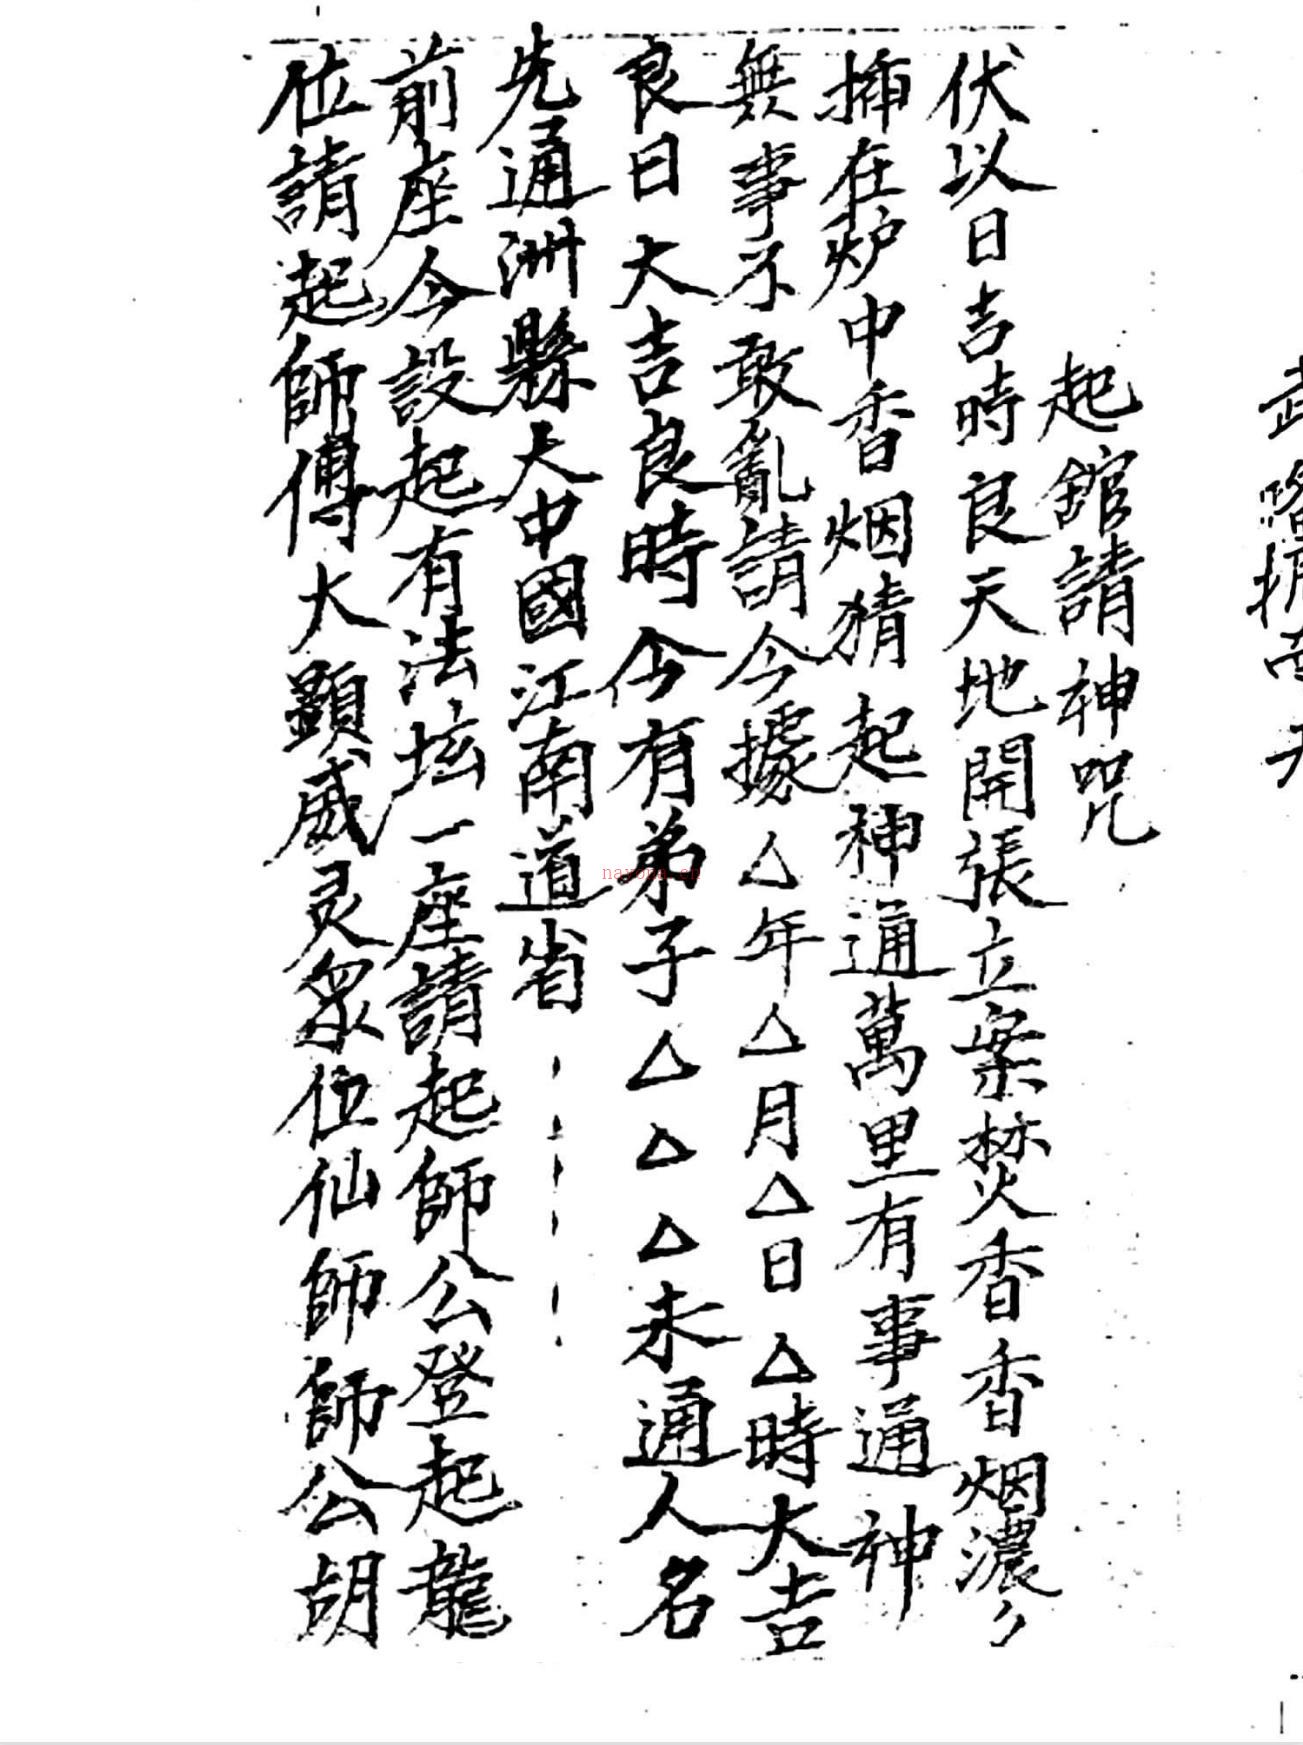 起館請神咒
伏以日吉時良天地開張立案焚香香烟濃々
插在炉中香烟猜起神通萬里有事通神
無事不敢亂請今據△年△月△日△時大吉
良日大吉良時今有弟子△△△未通人名
先通洲縣大中國江南道省
前座今設起有法坛一座請起師公登起龍
位請起師傅大顯威灵眾位仙師師公胡
nayona.cn